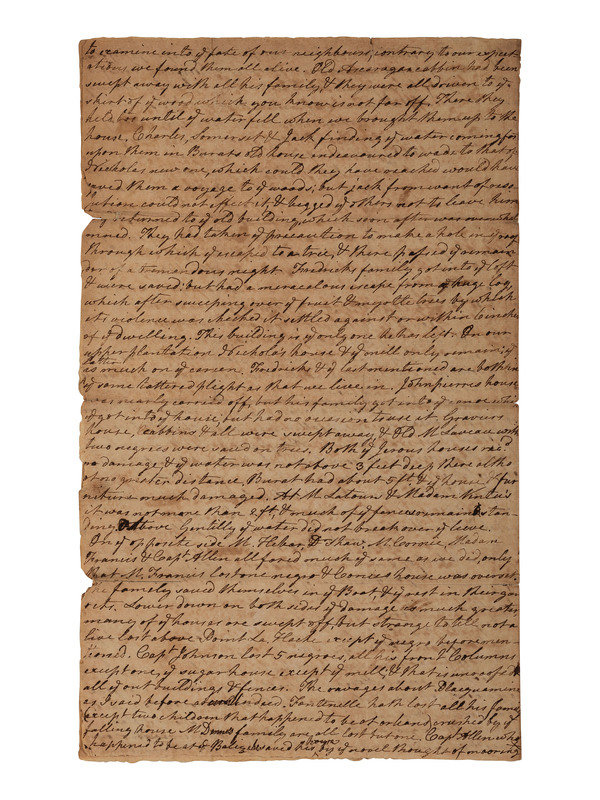 to examine into ye fate of our neighbours, contrary to our expect
ations, we found them all alive. Old cabbin had been
swept away with all his family, & they were all down to ye
skirt of ye wood which you know is not far off. There they
held on until ye water fell when we brought them up to the
house. Charles, Somerset & Jack finding ye water coming fast
upon them in Burats old house endeavoured to wade to that of
Nicholas new one, which could they have reached would have
saved them a voyage to ye woods; but Jack from want of reso
lution could not effect it, & begged ye others not to leave him
returned to ye old building, which soon after was overwhel
med. They had taken ye precaution to make a hole in ye roof
through which ye escaped to a tree, & there passed ye remain
der of a tremendous night. Fredricks family got into ye loft
& were saved but had a miraculous escape from a huge log,
which after sweeping over ye fruit & trees by which
its violence was checked it settled against or within 6 inches
of ye dwelling. This building is ye only one he has left. On our
upper plantation Nicholas house & ye mill only remain; ye
latter
as much on ye careen. Fredricks & ye last mentioned are both in
ye same battered plight as that we live in. John house
was nearly carried off, but his family got in
& got into ye house, but had no occasion to use it. Graviers
house, Cabbins & all were swept away, & Old with
two negroes were saved on trees. Both ye houses rec'd
no damage, & ye water was not above 3 feet deep there altho
at no greater distance Burat had about 5 ft & ye house & fur
niture much damaged. At M. Latours & Madam
it was not more than 2 ft, & much of ye fences remain stan
ding. Above Gentilly ye water did not break over ye levee.
On ye opposite side M. Hebar, D. Shaw, McCormic, Madam
Francis & Capt. Allen all fared much ye same as we did, only
that M. Francis lost one negro & house was overset.
The family saved themselves in ye Boat & ye rest in their gar
rets. Lower down on both sides ye damage is much greater
many of ye houses are swept off, but strange to tell not a
live lost above Point La Hache except ye negro beforemen
tioned. Capt. Johnson lost 5 negroes, all his front Columns
except one, ye sugar house except ye mill, & that is unroofed &
all ye out buildings & fences. The ravages about Placquemine
as I said before Fontenelle hath lost all his family
except two children that happened to be at orleans, crushed by ye
falling house. M family are all lost but one. Capt. Allen who
happened to be at ye Balize saved his by ye novel thought of mooring